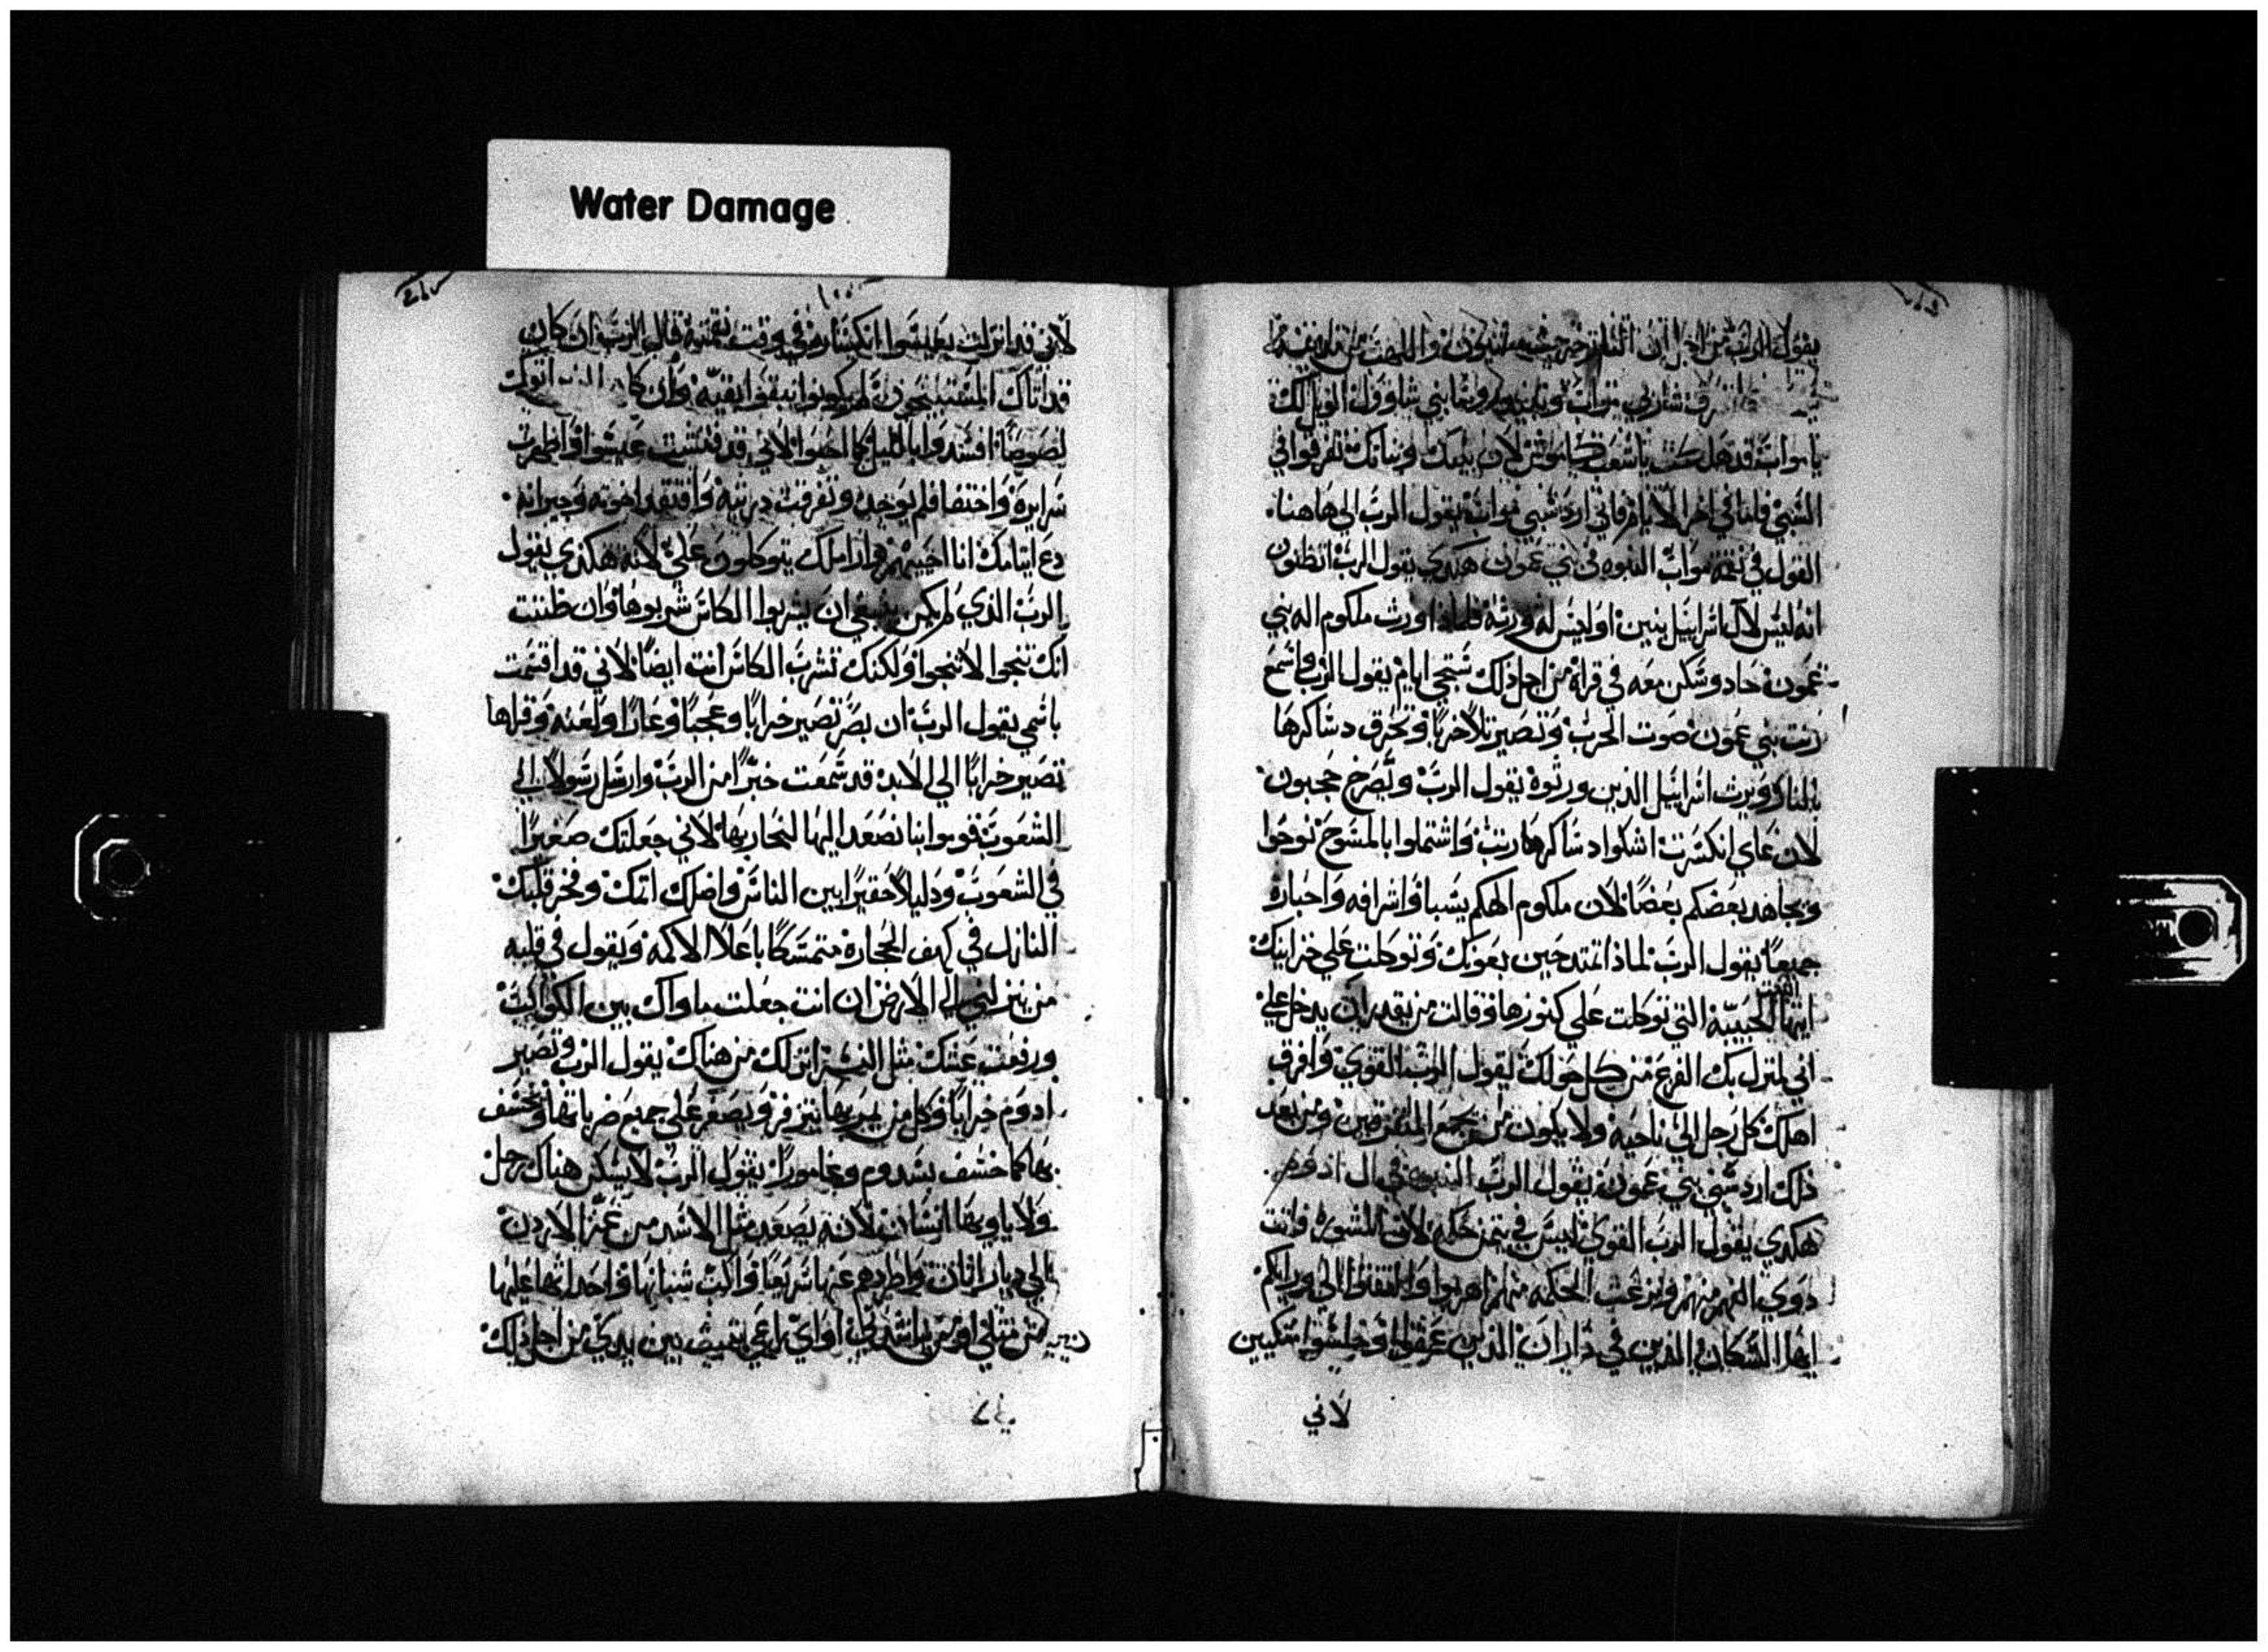 Water Damage
يقول الرب من اجل ان النار خرجت من حشبون واللهيب من
شارني مواب بني شاوول الويل لك
يا مواب قد هلك يا شعب كاموش لان بنيك وبناتك تفرقوا في
السبي فاما في اخر الايام فاني ارد سبي مواب يقول الرب الي هاهنا
القول في نقمة مواب النبوه في بني عمون هكدي يقول الرب اتظنون
انه ليس لال اسراييل بنين او ليس له ورثة فلماذا ورث ملكوم اله بني
عمون جاد وسكن معه في قراه من اجل ذلك ستجي ايام يقول الرب واسمع
ربت بني عمون صوت الحرب وتصير تلا خربا وتحرق دساكرها
بالنار ويرث اسراييل الذين ورثوه يقول الرب ويصرخ حجبون
لان عاي انكسرت اشكوا دساكرها ربت واشتملوا بالمسوح نوحوا
ويجاهد بعضكم بعضا لان ملكوم الهكم يسبا واشرافه واحباره
جميعا يقول الرب لماذا تمتدحين بعونك وتوكلت علي خزاينك
ايتها الحبيبة التي توكلت علي كنوزها وقالت من يقدر ان يدخل علي
اني لمنزل بك الفزع من كل حولك يقول الرب القوي وافرق
اهلك كل رجل الي ناحية ولا يكون من يجمع المتفرقين ومن بعد
ذلك ارد سبي بني عمون يقول الرب النبوه في ال ادوم
هكدي يقول الرب القوي ليس في تيمن حكمه لان المشورة فاتت
دوي الفهم منهم ونزعت الحكمه منهم اهربوا والتفتوا الي وراكم
ايها السكان الذين في داران الذين عمقوا وجلسوا متكيين
لاني
لاني قد انزلت بعيسوا انكساره في وقت نقمته قال الرب ان كان
قد اتاك المقتنيحون لم يكونوا يبقوا بقيه وان كان اتوك
لصوصا افسدوا بالليل كما احبوا لاني قد فتشت عيسوا واظهرت
سرايره واختفا فلم يوجد وتفرقت دريته وافتقد اخوته وجيرانه
دع ايتامك انا احييهم واراملك يتوكلون علي لانه هكدي يقول
الرب الذي لم يكن ينبغي ان يشربوا الكاس شربوها وان ظننت
انك تنجوا لا تنجوا ولكنك تشرب الكاس انت ايضا لاني قد اقسمت
باسمي يقول الرب ان بصر تصير خرابا وعجبا وعارا ولعنه وقراها
تصير خرابا الي الابد قد سمعت خبرا من الرب وارسل رسولا الي
الشعوب قوموا بنا نصعد اليها لنحاربها لاني جعلتك صغيرا
في الشعوب ودليلا حقيرا بين الناس واضلك اتمك وفخر قلبك
النازل في كهف الحجارة متمسكا باعلا الاكمه ويقول في قلبه
من ينزلني الي الارض ان انت جعلت ماواك بين الكواكب
ورفعت عشك مثل النسر انزلك من هناك يقول الرب وتصير
ادوم خرابا وكل من يمر بها يتزفر ويصفر علي جميع ضرباتها وتخسف
بها كما خسف بسدوم وغامورا يقول الرب لا يسكن هناك رجل
ولا ياويها انسان لانه يصعد مثل الاسد من عز الاردن
الي ديار اتان واطردهم عنها سريعا واكب شبانها واحداثها عليها
من مثلي او من يناشدني او اي راعي يقف بين يدي من اجل ذلك